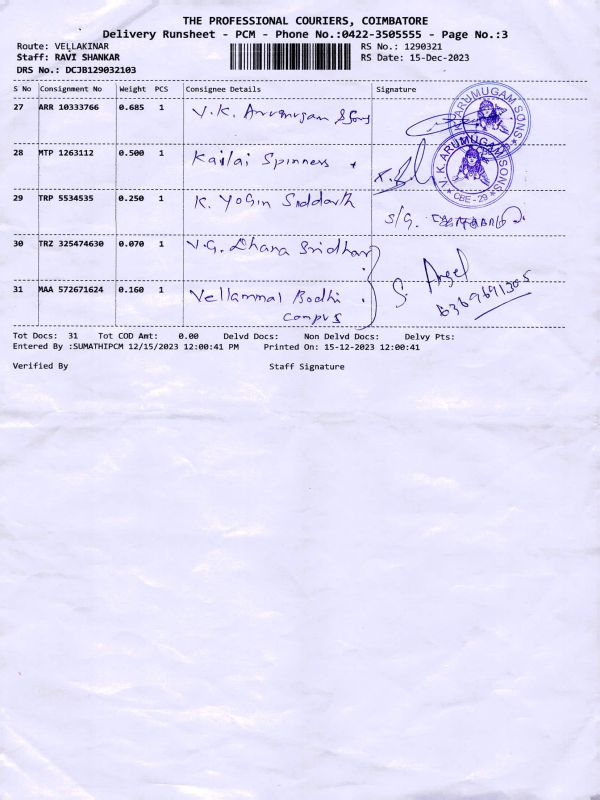 THE PROFESSIONAL COURIERS, COIMBATORE
Delivery Runsheet - PCM - Phone No.:0422-3505555 - Page No.:3
Route: VELLAKINAR RS No.: 1290321
Staff: RAVI SHANKAR RS Date: 15-Dec-2023
DRS No.: DCJB129032103
S No Consignment No Weight PCS Consignee Details Signature
27 ARR 10333766 0.685 1 V.K. Arumugam & Sons
V.K.ARUMUGAM SONS
28 MTP 1263112 0.500 1 Kailai Spinners
V.K.ARUMUGAM SONS
★ CBE-29 ★
29 TRP 5534535 0.250 1 K. Yogin Siddarth
S/G.
30 TRZ 325474630 0.070 1 V.G. Dhana Sridhar
S. Angel
31 MAA 572671624 0.160 1 Vellammal Bodhi
campus
Tot Docs: 31 Tot COD Amt: 0.00 Delvd Docs: Non Delvd Docs: Delvy Pts:
Entered By :SUMATHIPCM 12/15/2023 12:00:41 PM Printed On: 15-12-2023 12:00:41
Verified By Staff Signature